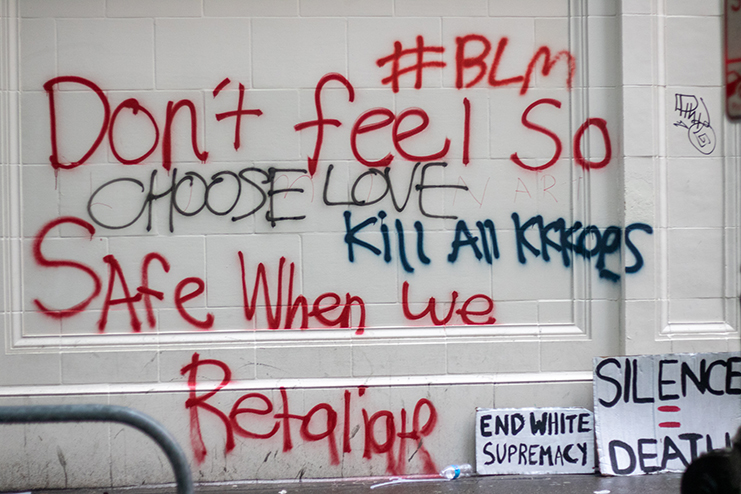 #BLM
Don't feel So
CHOOSE LOVE
Kill All KKKops
Safe When we
Retaliate
END WHITE
SUPREMACY
SILENCE
=
DEATH